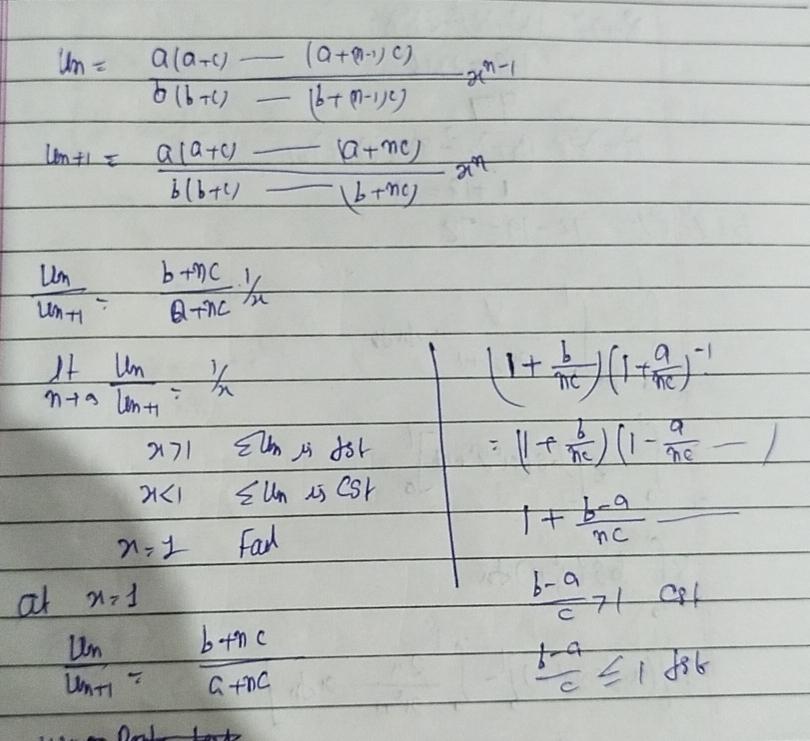 Un = a(a+c) — (a+(n-1)c) / b(b+c) — (b+(n-1)c) x^n-1
Un+1 = a(a+c) — (a+nc) / b(b+c) — (b+nc) x^n
Un/Un+1 = b+nc / a+nc 1/x
lt n→∞ Un/Un+1 = 1/x
x>1 ΣUn is dgt
x<1 ΣUn is cgt
x=1 Fail
at x=1
Un/Un+1 = b+nc / a+nc
(1 + b/nc)(1 + a/nc)^-1
= (1 + b/nc)(1 - a/nc — )
1 + b-a/nc —
b-a/c >1 cgt
b-a/c ≤ 1 dgt